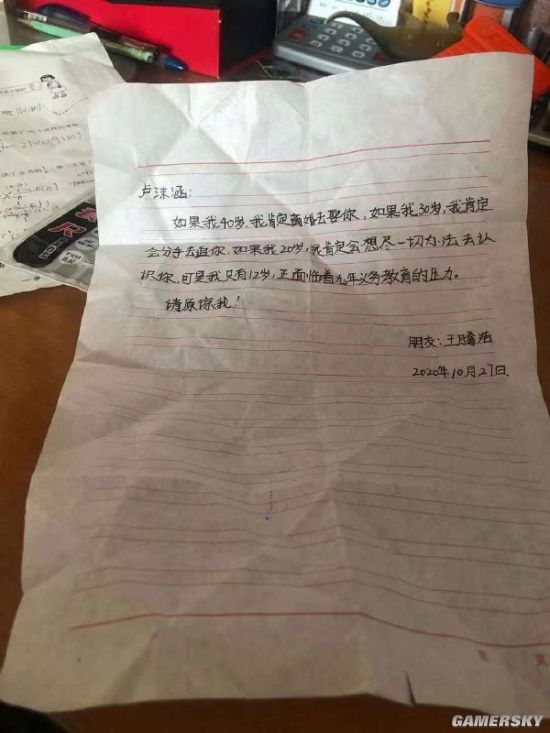 卢沫涵:
如果我40岁,我肯定离婚去娶你,如果我30岁,我肯定
会分手去追你,如果我20岁,我肯定会想尽一切办法去认
识你,可是我只有12岁,正面临着九年义务教育的压力。
请原谅我!
朋友:王腾浩
2020年10月27日.
GAMERSKY